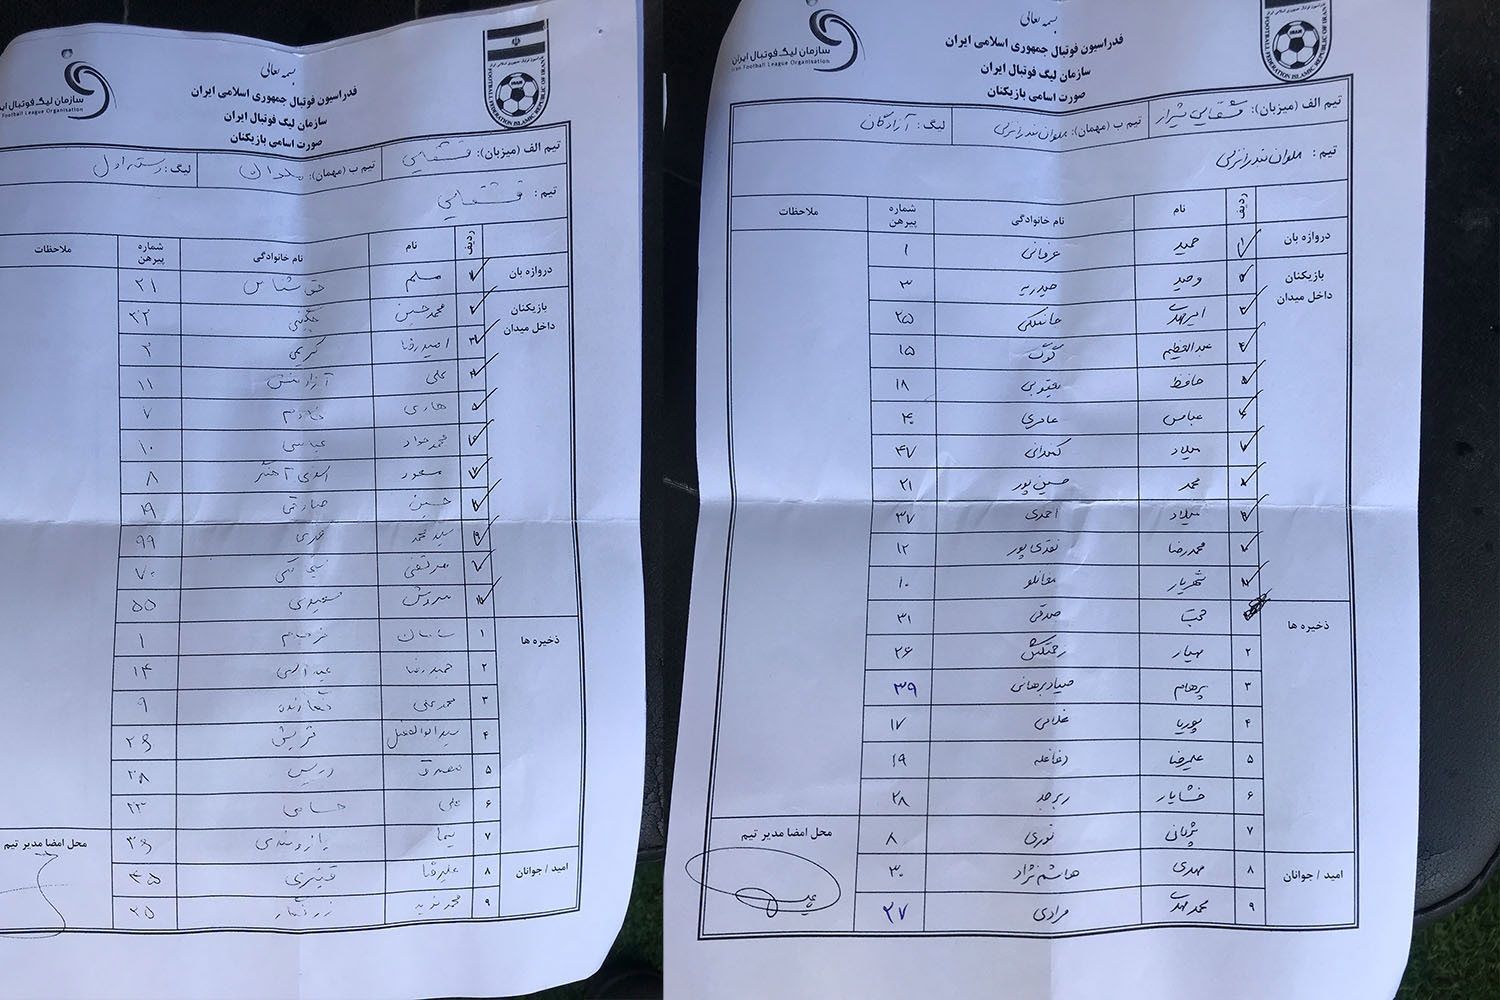 بسمه تعالی
فدراسیون فوتبال جمهوری اسلامی ایران
سازمان لیگ فوتبال ایران
صورت اسامی بازیکنان
سازمان لیگ فوتبال ایران
Football League Organisation
FOOTBALL FEDERATION ISLAMIC REPUBLIC OF IRAN
تیم الف (میزبان): قشقایی تیم ب (مهمان): ملوان لیگ: دسته اول
تیم: قشقایی
ردیف نام نام خانوادگی شماره پیرهن ملاحظات
دروازه بان ۱ مسلم حق شناس ۲۱
بازیکنان داخل میدان ۲ محمدحسین ۳۲
۳ امیدرضا کریمی ۲
۴ علی آزادمنش ۱۱
۵ هادی خادم ۷
۶ محمدجواد عباسی ۱۰
۷ اسدی آهنگر ۸
۸ حسین صادقی ۱۹
۹ سید محمد ۹۹
۱۰ مرتضی ۷۰
۱۱ سروش سعیدی ۵۵
ذخیره ها ۱ سامان ۱
۲ حمیدرضا عبدالهی ۱۴
۳ محمدعلی ۹
۴ سیدابوالفضل قریشی ۲۶
۵ مصدق ۳۸
۶ علی حسامی ۲۳
۷ نیما ۳۶
امید / جوانان ۸ علیرضا قنبری ۴۵
۹ ۲۵
محل امضا مدیر تیم
بسمه تعالی
فدراسیون فوتبال جمهوری اسلامی ایران
سازمان لیگ فوتبال ایران
صورت اسامی بازیکنان
سازمان لیگ فوتبال ایران
Iran Football League Organisation
IRAN
FOOTBALL FEDERATION ISLAMIC REPUBLIC OF IRAN
تیم الف (میزبان): قشقایی شیراز تیم ب (مهمان): ملوان بندرانزلی لیگ: آزادگان
تیم: ملوان بندرانزلی
ردیف نام نام خانوادگی شماره پیرهن ملاحظات
دروازه بان ۱ حمید عرفانی ۱
بازیکنان داخل میدان ۲ وحید حیدریه ۳
۳ امیرمهدی جانملکی ۲۵
۴ عبدالعظیم گوگ ۱۵
۵ حافظ یعقوبی ۱۸
۶ عباس عامری ۴۰
۷ میلاد کنعانی ۴۷
۸ محمد حسین پور ۲۱
۹ میلاد احمدی ۳۷
۱۰ محمدرضا نقدی پور ۱۲
۱۱ شهریار مغانلو ۱۰
ذخیره ها مجتبی صدقی ۳۱
۲ مهیار زحمتکش ۲۶
۳ پرهام صیادبرهانی ۳۹
۴ پوریا غلامی ۱۷
۵ علیرضا دفاعله ۱۹
۶ خشایار زبرجد ۲۸
۷ پژمان نوری ۸
امید / جوانان ۸ مهدی هاشم نژاد ۳۰
۹ محمدمهدی مرادی ۲۷
محل امضا مدیر تیم